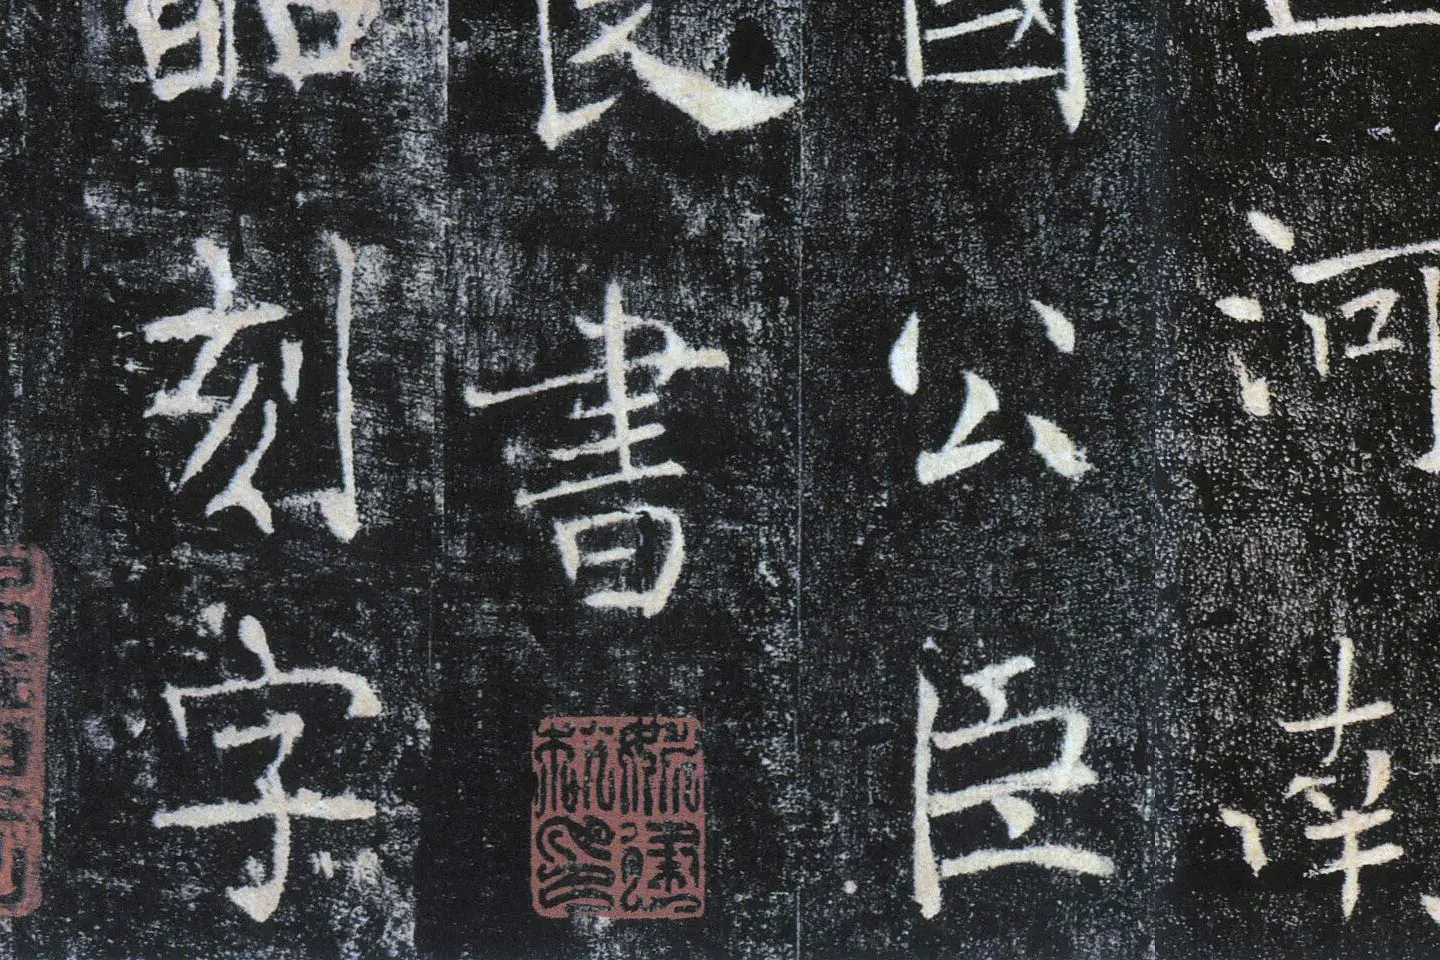 河南
國公臣
良書
韶刻字